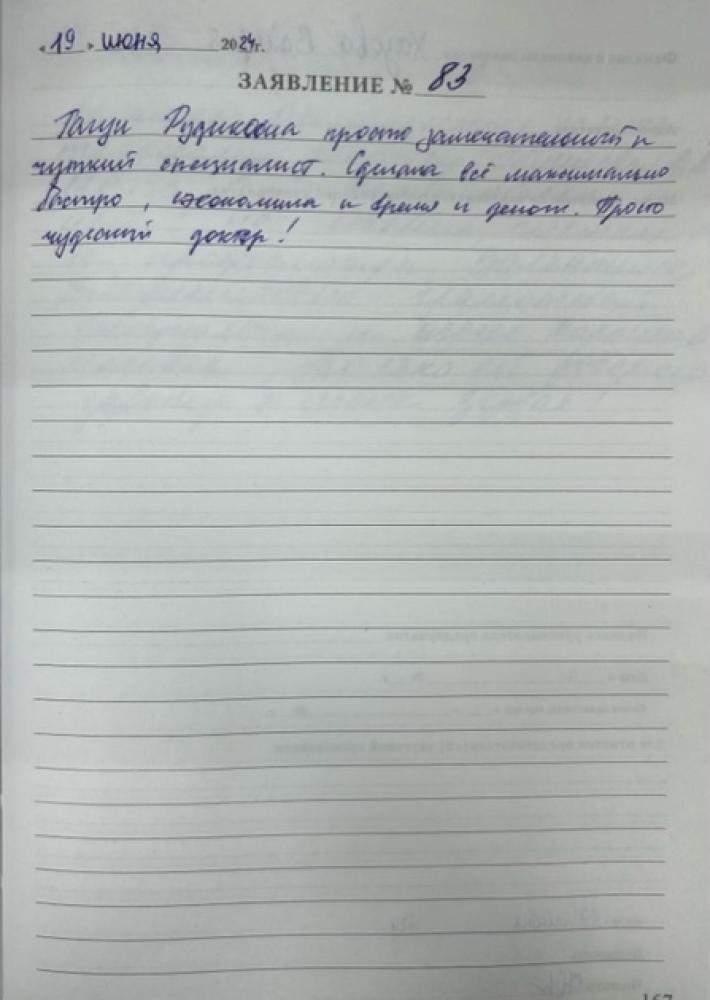 «19» июня 2024г.
ЗАЯВЛЕНИЕ № 83
Тагуи Рудиковна просто замечательный и
чуткий специалист. Сделала всё максимально
быстро, сэкономила и время и деньги. Просто
чудесный доктор!
167